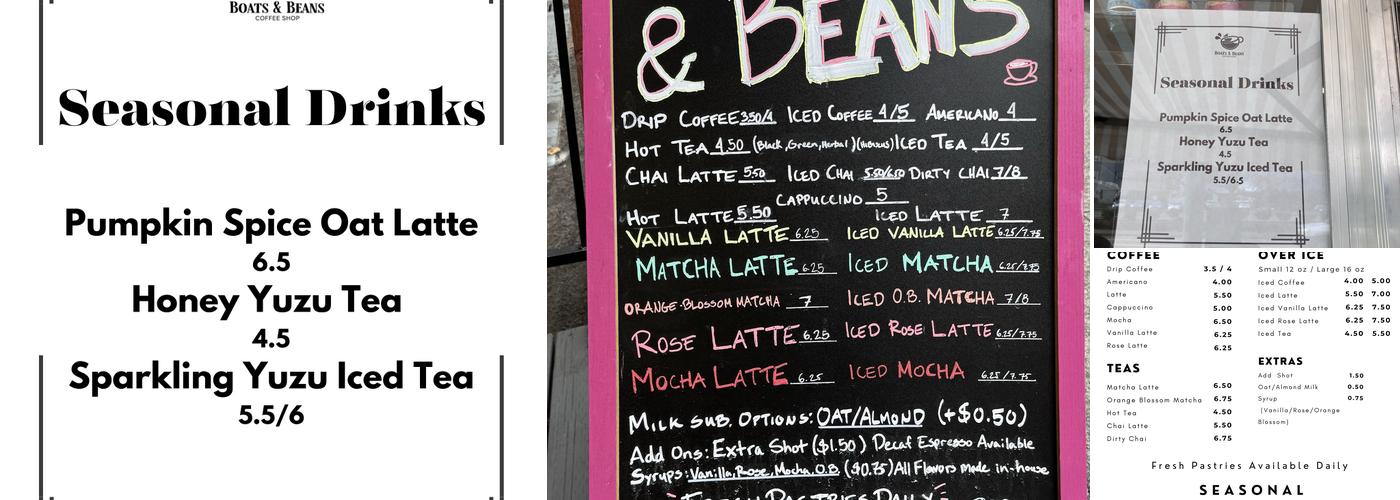 BOATS & BEANS
COFFEE SHOP
Seasonal Drinks
Pumpkin Spice Oat Latte
6.5
Honey Yuzu Tea
4.5
Sparkling Yuzu Iced Tea
5.5/6
& BEANS
DRIP COFFEE 3.50/4 ICED COFFEE 4/5 AMERICANO 4
HOT TEA 4.50 (Black, Green, Herbal)(Hibiscus) ICED TEA 4/5
CHAI LATTE 5.50 ICED CHAI 5.50/6.50 DIRTY CHAI 7/8
CAPPUCCINO 5
HOT LATTE 5.50 ICED LATTE 7
VANILLA LATTE 6.25 ICED VANILLA LATTE 6.25/7.75
MATCHA LATTE 6.25 ICED MATCHA 6.25/7.75
ORANGE-BLOSSOM MATCHA 7 ICED O.B. MATCHA 7/8
ROSE LATTE 6.25 ICED ROSE LATTE 6.25/7.75
MOCHA LATTE 6.25 ICED MOCHA 6.25/7.75
MILK SUB. OPTIONS: OAT/ALMOND (+$0.50)
Add Ons: Extra Shot ($1.50) Decaf Espresso Available
Syrups: Vanilla, Rose, Mocha, O.B. ($0.75) All Flavors made in-house
FRESH PASTRIES DAILY
BOATS & BEANS
Seasonal Drinks
Pumpkin Spice Oat Latte
6.5
Honey Yuzu Tea
4.5
Sparkling Yuzu Iced Tea
5.5/6.5
COFFEE
Drip Coffee 3.5 / 4
Americano 4.00
Latte 5.50
Cappuccino 5.00
Mocha 6.50
Vanilla Latte 6.25
Rose Latte 6.25
TEAS
Matcha Latte 6.50
Orange Blossom Matcha 6.75
Hot Tea 4.50
Chai Latte 5.50
Dirty Chai 6.75
OVER ICE
Small 12 oz / Large 16 oz
Iced Coffee 4.00 5.00
Iced Latte 5.50 7.00
Iced Vanilla Latte 6.25 7.50
Iced Rose Latte 6.25 7.50
Iced Tea 4.50 5.50
EXTRAS
Add Shot 1.50
Oat/Almond Milk 0.50
Syrup 0.75
(Vanilla/Rose/Orange
Blossom)
Fresh Pastries Available Daily
SEASONAL